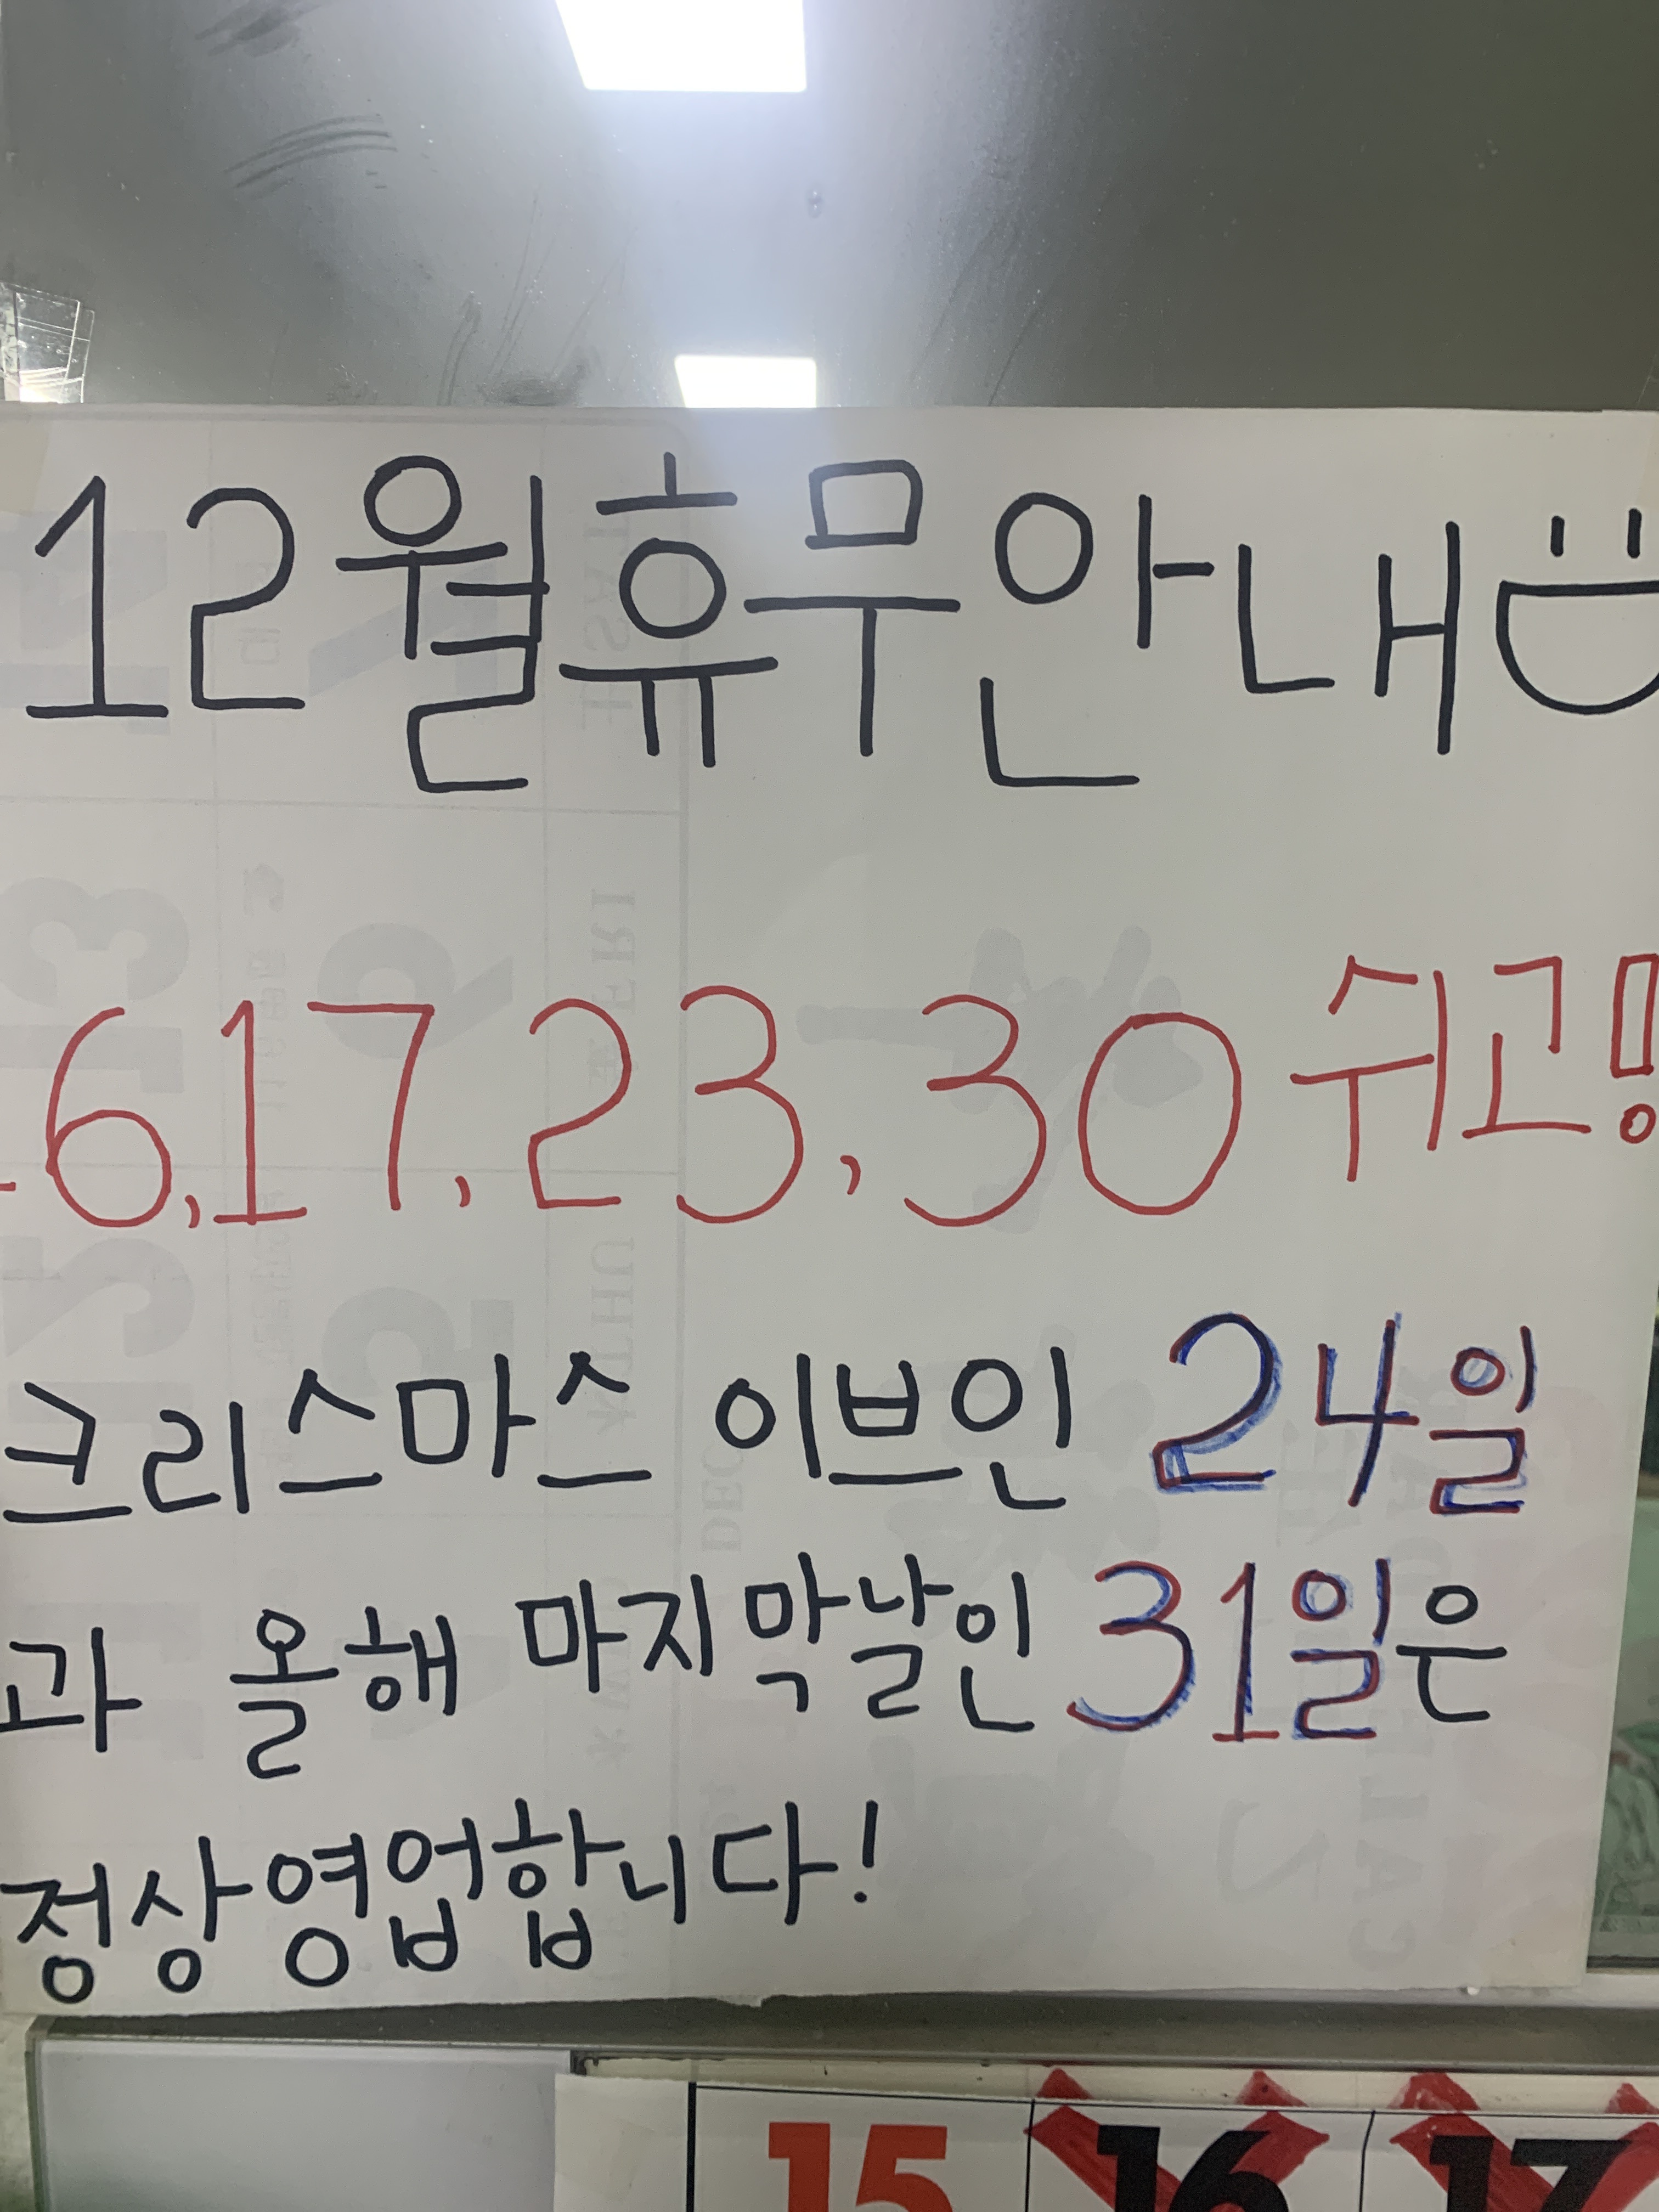 12월 휴무 안내
6, 17, 23, 30 쉬고!
크리스마스 이브인 24일
과 올해 마지막날인 31일은
정상영업합니다!
15 16 17